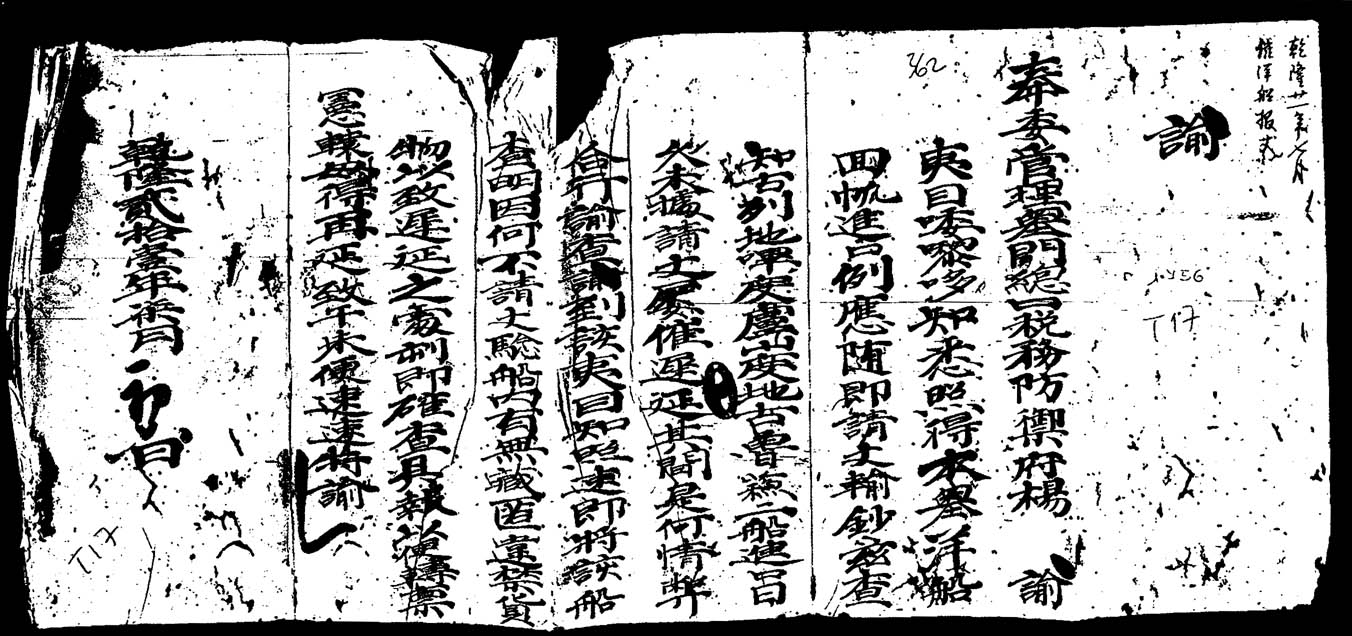 乾隆廿一年七月
催洋船报丈
諭
362
奉委管理墺門總口税務防禦府楊 諭
夷目喽嚟哆知悉照得本墺洋船
回帆進口例應随即請丈輸鈔兹查
知古列地
盧
地古魯
二船進口日
久未據請丈屢催遲延其間是何情弊
合行諭查諭到該夷目知照速即將該船
查明因何不請丈驗船内有無藏匿違禁貨
物以致遲延之處刻即確查具報以便轉禀
憲轅毋得再延致干未便速速特諭
乾隆貳拾壹年柒月 初 日
1756
T17
T17